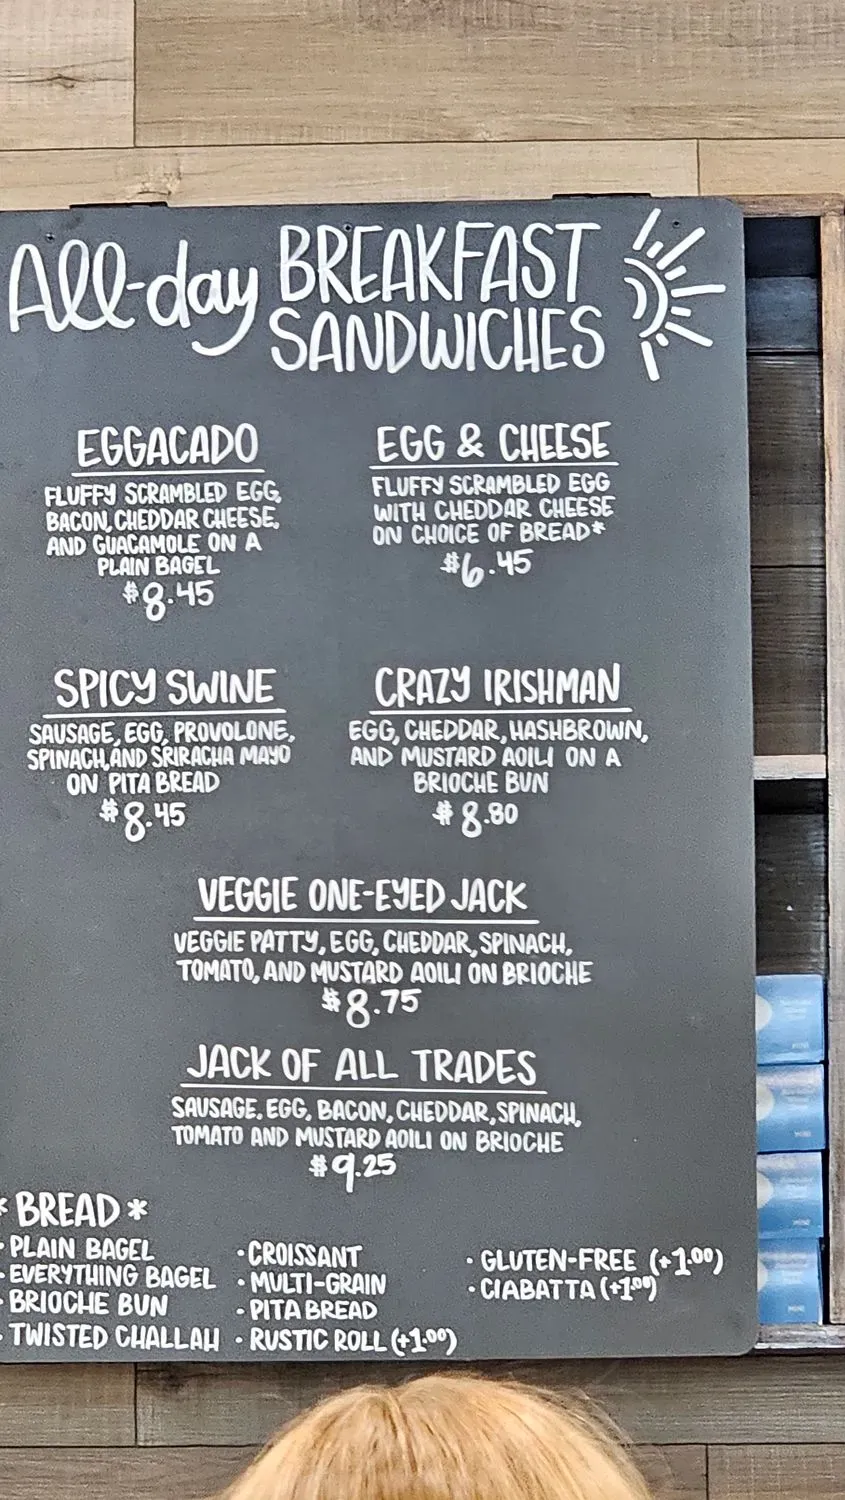 All-day BREAKFAST
SANDWICHES
EGGACADO
FLUFFY SCRAMBLED EGG,
BACON, CHEDDAR CHEESE,
AND GUACAMOLE ON A
PLAIN BAGEL
$8.45
EGG & CHEESE
FLUFFY SCRAMBLED EGG
WITH CHEDDAR CHEESE
ON CHOICE OF BREAD*
$6.45
SPICY SWINE
SAUSAGE, EGG, PROVOLONE,
SPINACH, AND SRIRACHA MAYO
ON PITA BREAD
$8.45
CRAZY IRISHMAN
EGG, CHEDDAR, HASHBROWN,
AND MUSTARD AOILI ON A
BRIOCHE BUN
$8.80
VEGGIE ONE-EYED JACK
VEGGIE PATTY, EGG, CHEDDAR, SPINACH,
TOMATO, AND MUSTARD AOILI ON BRIOCHE
$8.75
JACK OF ALL TRADES
SAUSAGE, EGG, BACON, CHEDDAR, SPINACH,
TOMATO AND MUSTARD AOILI ON BRIOCHE
$9.25
*BREAD*
• PLAIN BAGEL
• EVERYTHING BAGEL
• BRIOCHE BUN
• TWISTED CHALLAH
• CROISSANT
• MULTI-GRAIN
• PITA BREAD
• RUSTIC ROLL (+1.00)
• GLUTEN-FREE (+1.00)
• CIABATTA (+1.00)